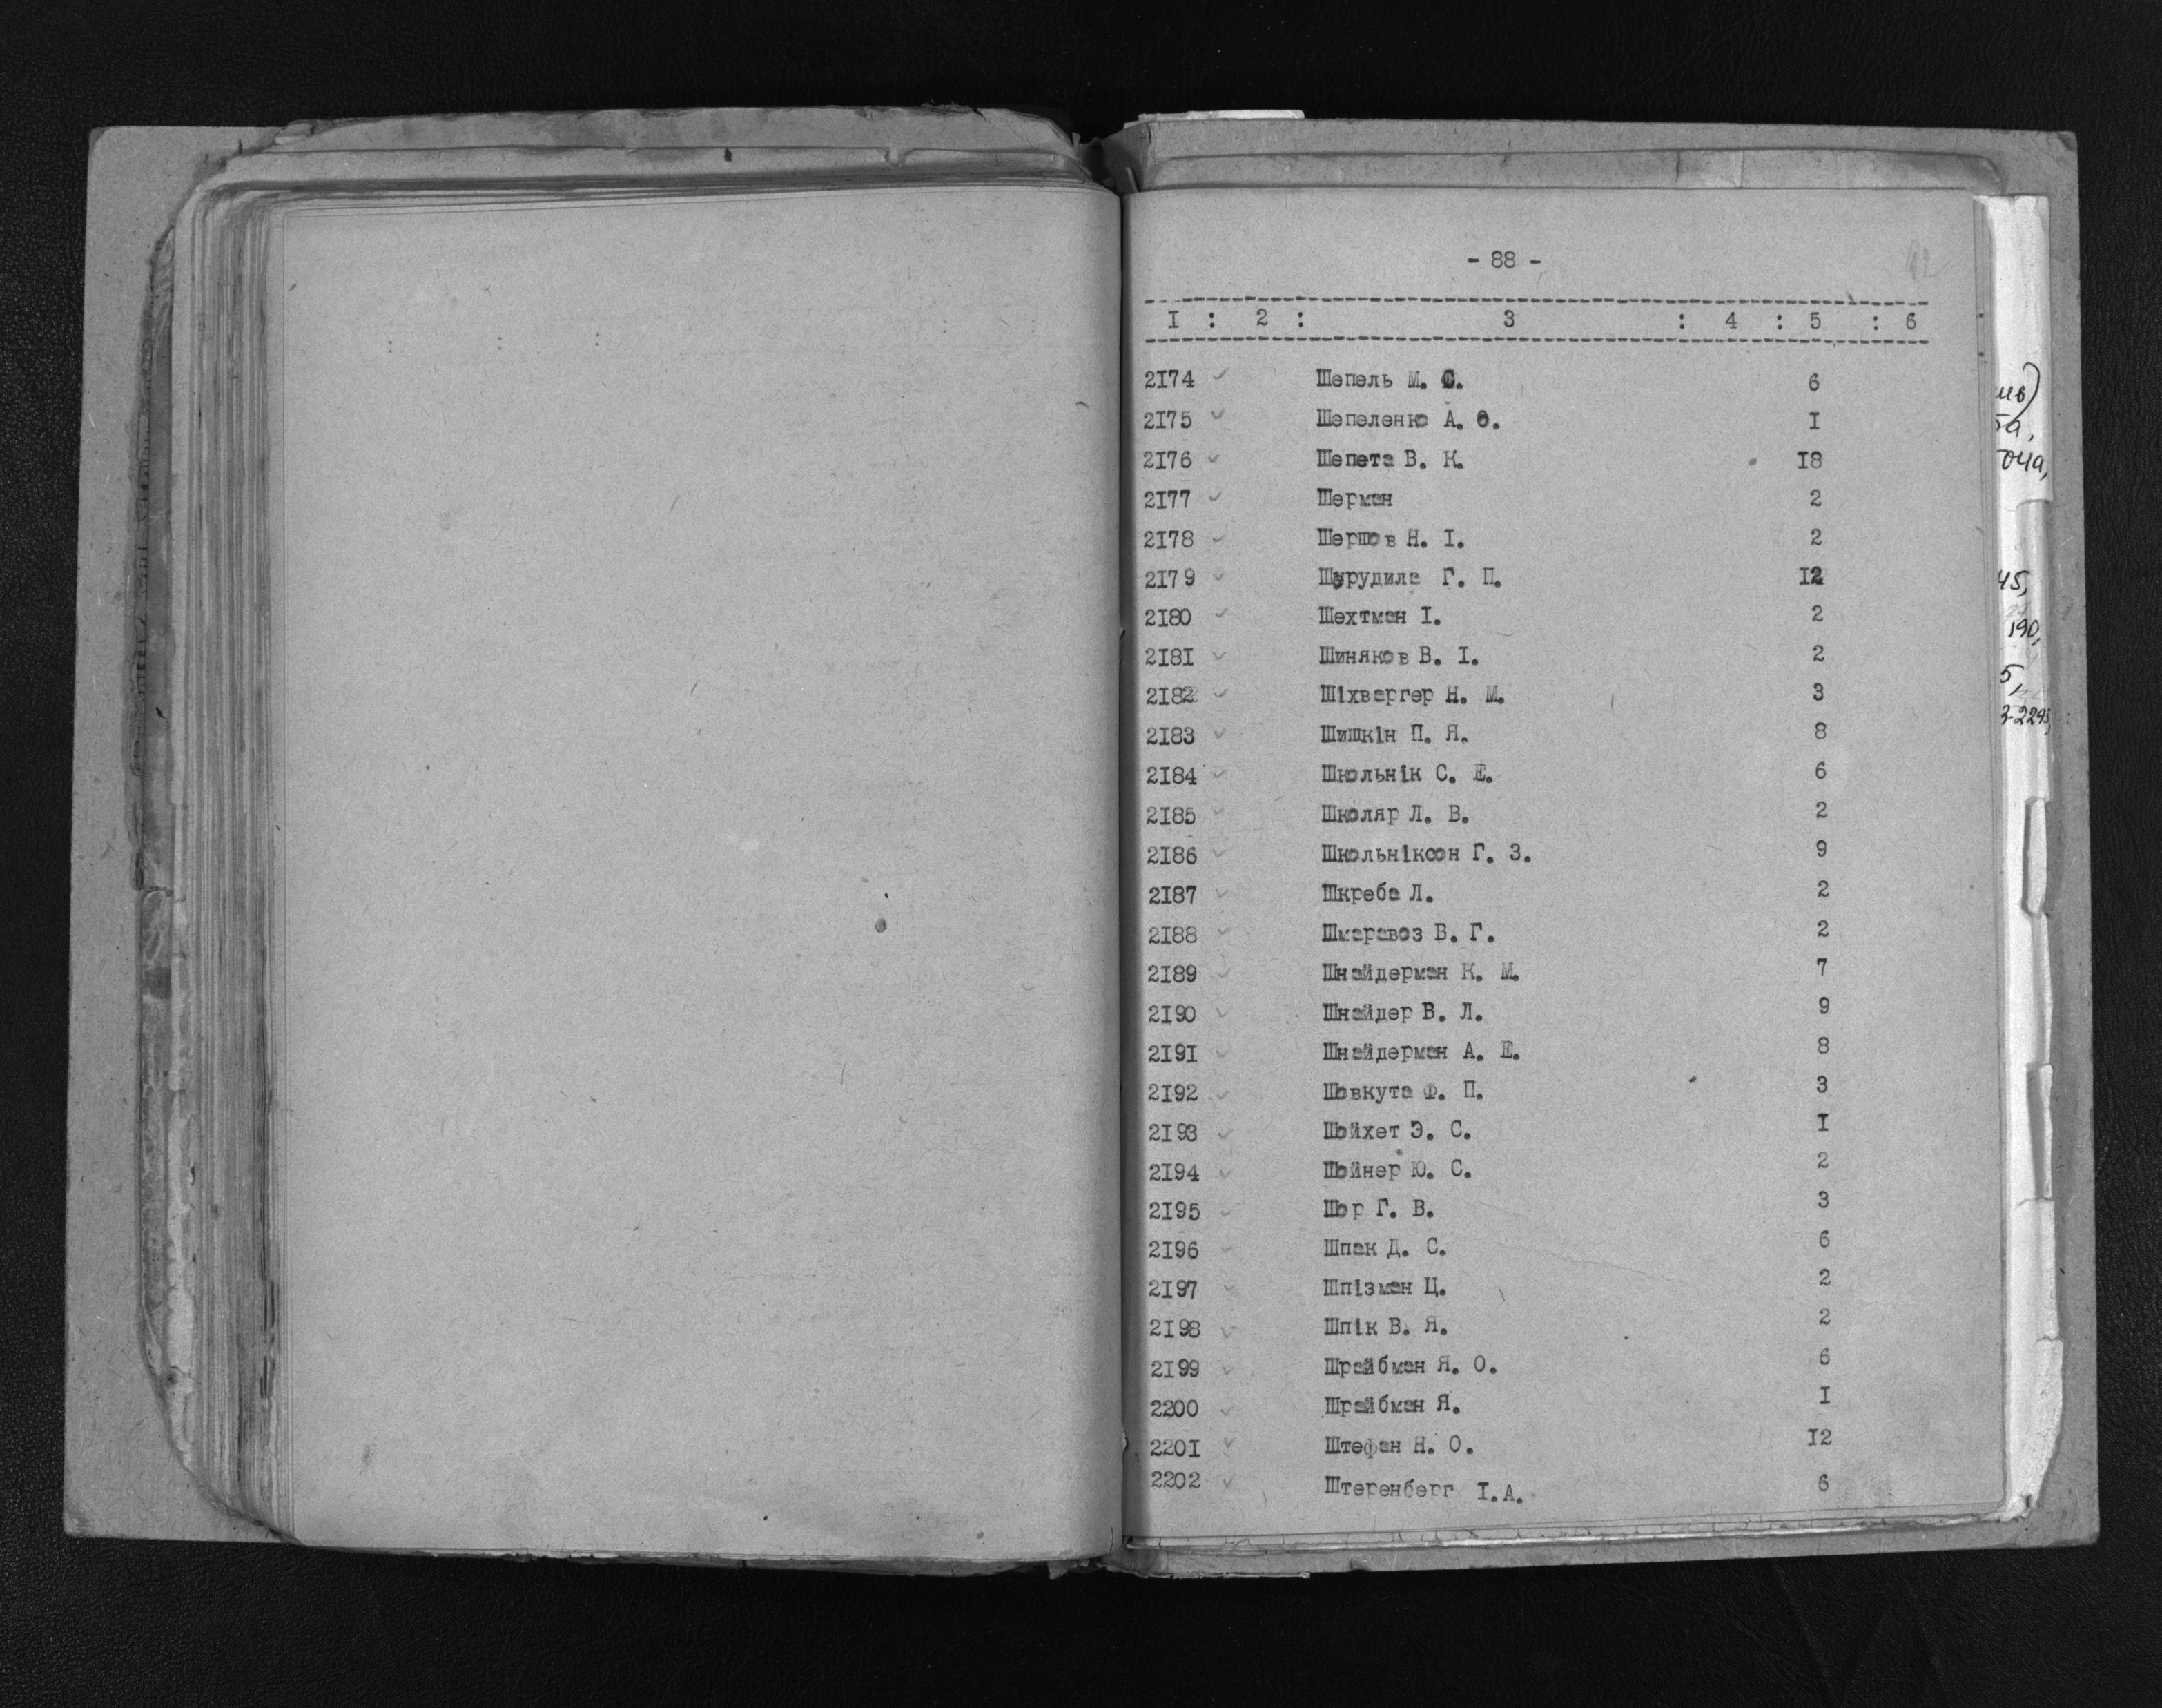 - 88 -
I : 2 : 3 : 4 : 5 : 6
2I74 Шепель М. С. 6
2I75 Шепеленко А. О. I
2I76 Шепета В. К. I8
2I77 Шерман 2
2I78 Шершов Н. І. 2
2I79 Шурудила Г. П. I2
2I80 Шехтман І. 2
2I8I Шиняков В. І. 2
2I82 Шіхвергер Н. М. 3
2I83 Шишкін П. Я. 8
2I84 Школьнік С. Е. 6
2I85 Школяр Л. В. 2
2I86 Школьніксон Г. З. 9
2I87 Шкреба Л. 2
2I88 Шмаравоз В. Г. 2
2I89 Шнайдерман К. М. 7
2I90 Шнайдер В. Л. 9
2I9I Шнайдерман А. Е. 8
2I92 Шовкута Ф. П. 3
2I93 Шойхет Э. С. I
2I94 Шойнер Ю. С. 2
2I95 Шор Г. В. 3
2I96 Шпак Д. С. 6
2I97 Шпізман Ц. 2
2I98 Шпік В. Я. 2
2I99 Шрайбман Я. О. 6
2200 Шрайбман Я. I
220I Штефан Н. О. I2
2202 Штеренберг І.А. 6
45,
190,
5,
3-2295,